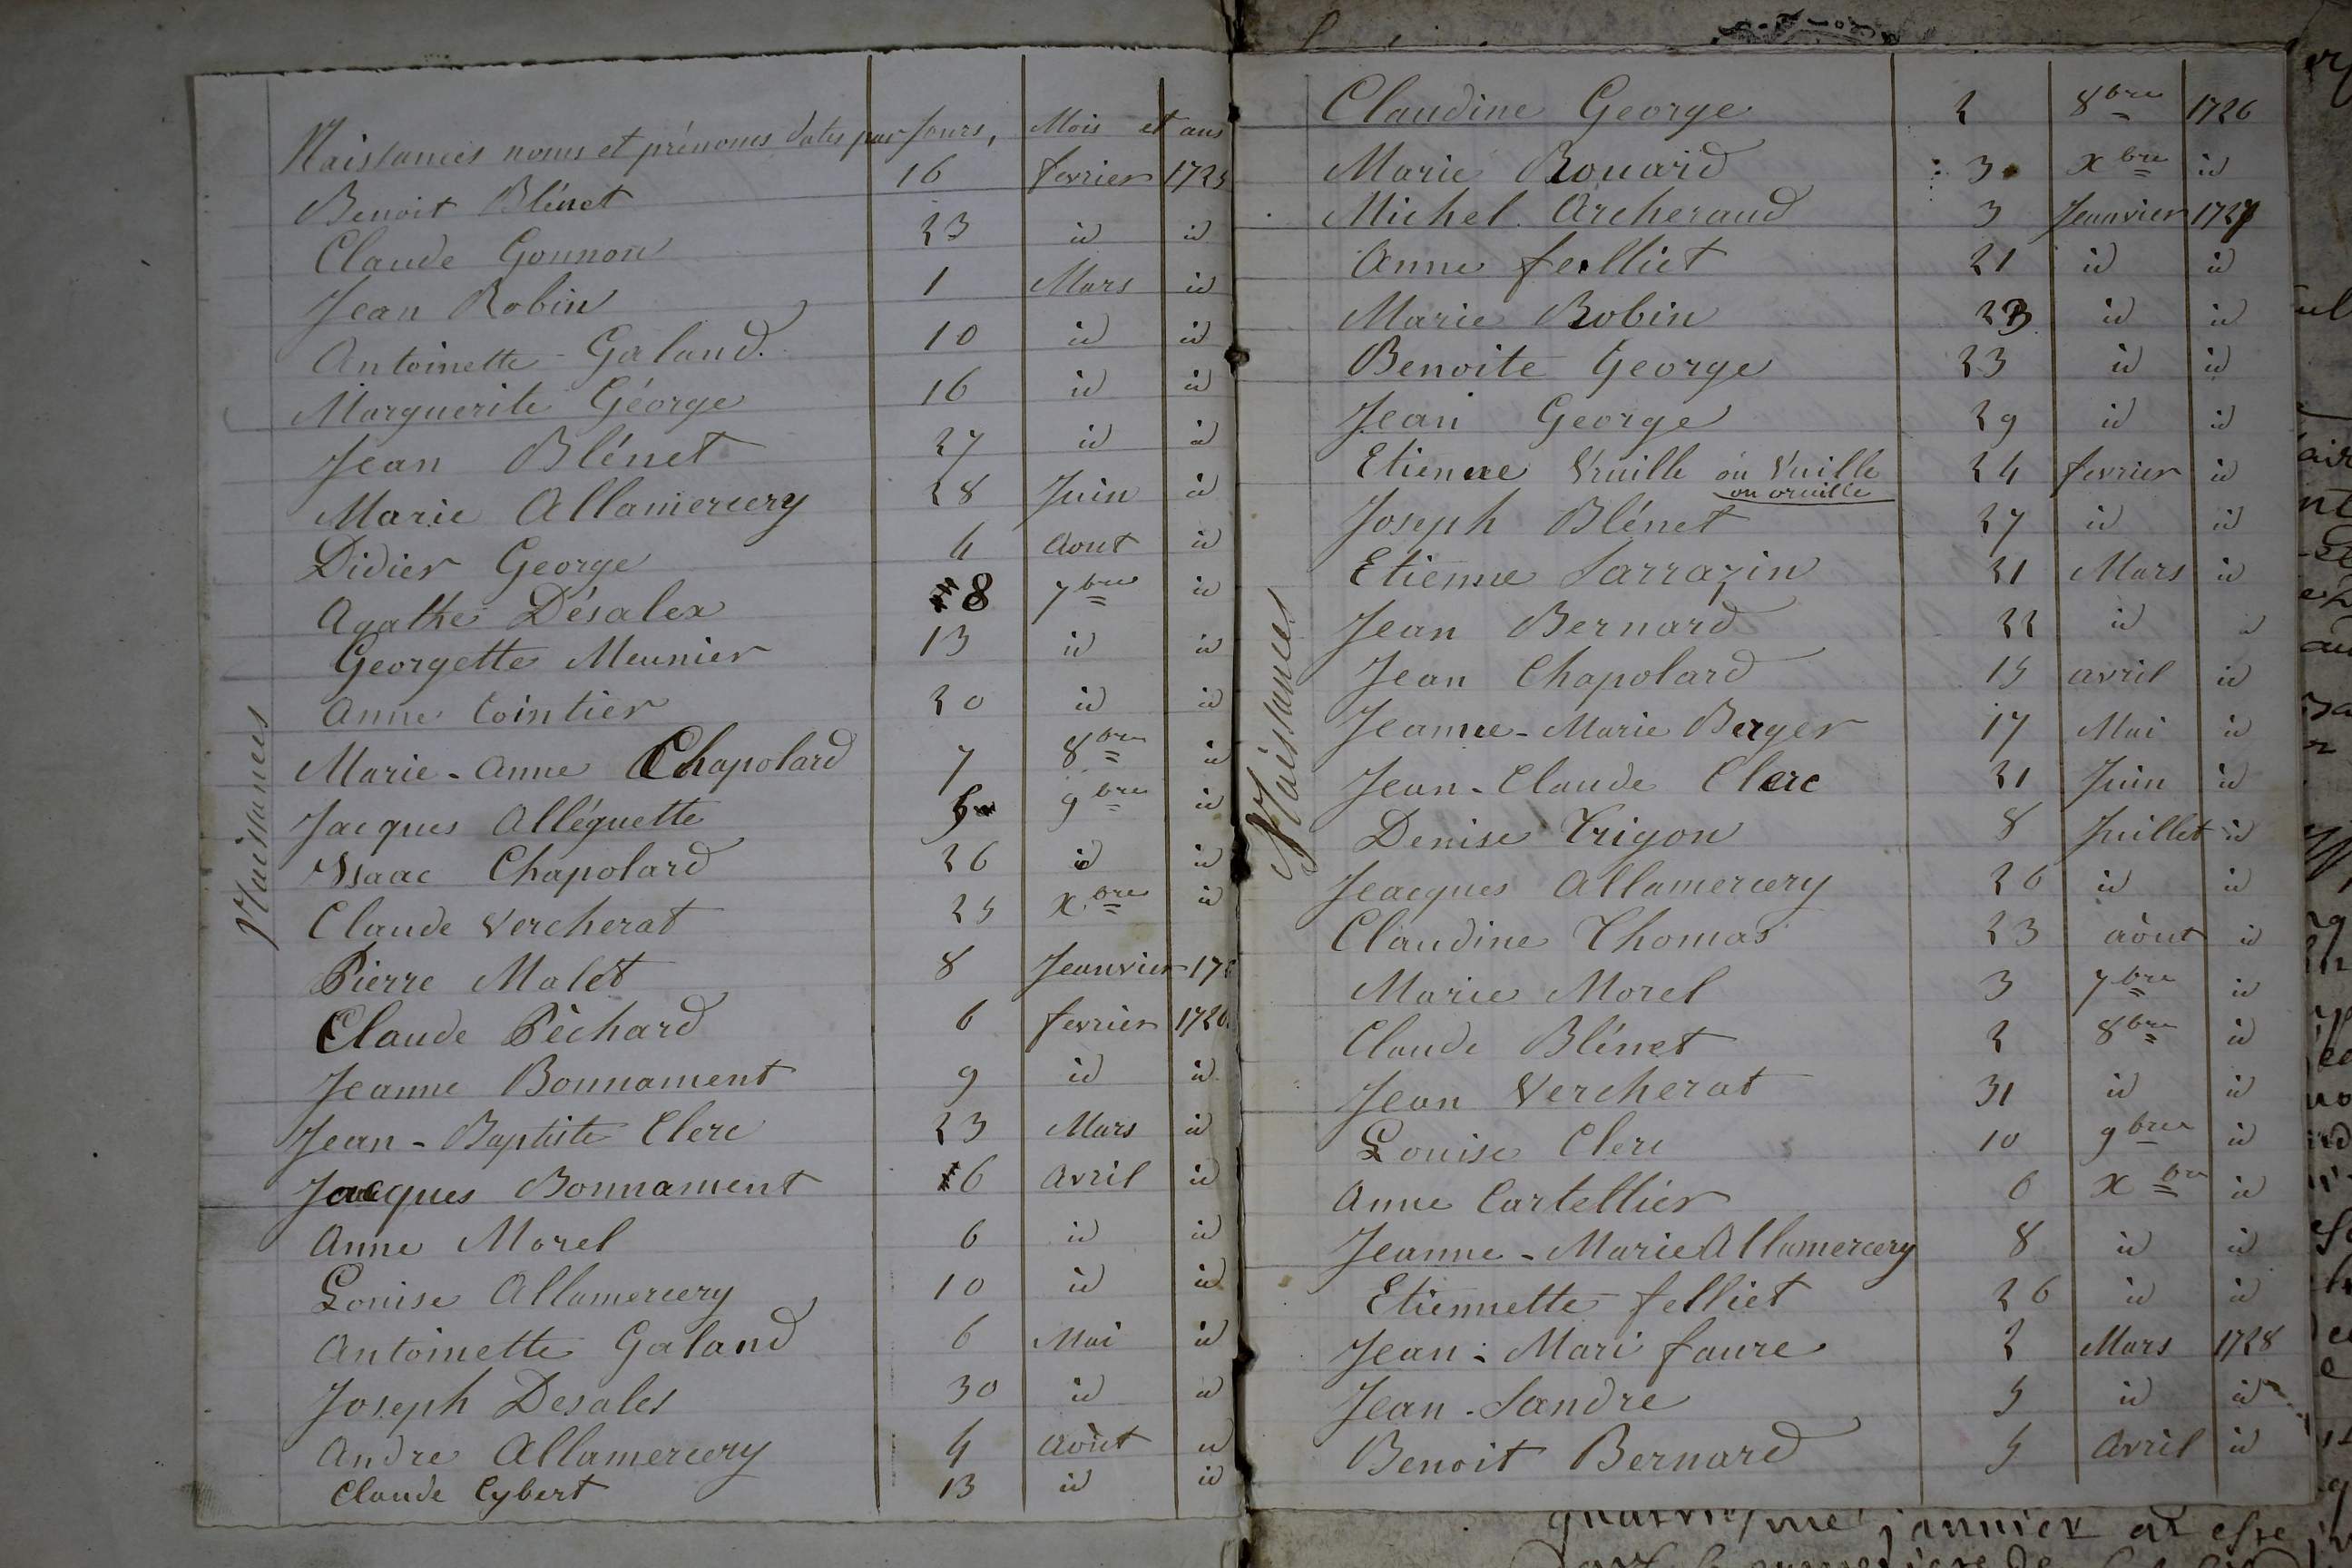 Naissances noms et prénoms dates par jours, Mois et ans
Benoit Blénet 16 fevrier 1725
Claude Gonnon 23 id id
Jean Robin 1 Mars id
Antoinette Galand. 10 id id
Marguerite Géorge 16 id id
Jean Blénet 27 id id
Marie Allamercery 28 Juin id
Didier George 4 Aout id
Agathe Désalex 8 7bre id
Georgette Meunier 13 id id
Anne Cointier 20 id id
Marie-Anne Chapolard 7 8bre id
Jacques Alléguette 5 9bre id
Isaac Chapolard 26 id id
Claude Vercherat 25 xbre id
Pierre Malet 8 Jeanvier
Claude Pèchard 6 fevrier 1726
Jeanne Bonnament 9 id id
Jean-Baptiste Clerc 23 Mars id
Jacques Bonnament 6 Avril id
Anne Morel 6 id id
Louise Allamercery 10 id id
Antoinette Galand 6 Mai id
Joseph Desales 30 id id
Andre Allamercery 4 Août id
Claude Cybert 13 id id
Naissances
Claudine George 2 8bre 1726
Marie Rouard 3 xbre id
Michel Archeraud 3 Jeanvier 1727
Anne felliet 21 id id
Marie Robin 23 id id
Benoite George 23 id id
Jean George 29 id id
Etienne Vruille ou Vuille 24 fevrier id
ou oruille
Joseph Blénet 27 id id
Etienne Sarrazin 21 Mars id
Jean Bernard 22 id id
Jean Chapolard 15 avril id
Jeanne-Marie Berger 17 Mai id
Jean-Claude Clerc 21 Juin id
Denise Trigon 8 Juillet id
Jeacques Allamercery 26 id id
Claudine Thomas 23 août id
Marie Morel 3 7bre id
Claude Blénet 2 8bre id
Jean Vercherat 31 id id
Louise Clerc 10 9bre id
Anne Cartellier 6 xbre id
Jeanne-Marie Allamercery 8 id id
Etiennette felliet 26 id id
Jean-Mari faure 2 Mars 1728
Jean-Sandre 5 id id
Benoit Bernard 5 Avril id
Naissances